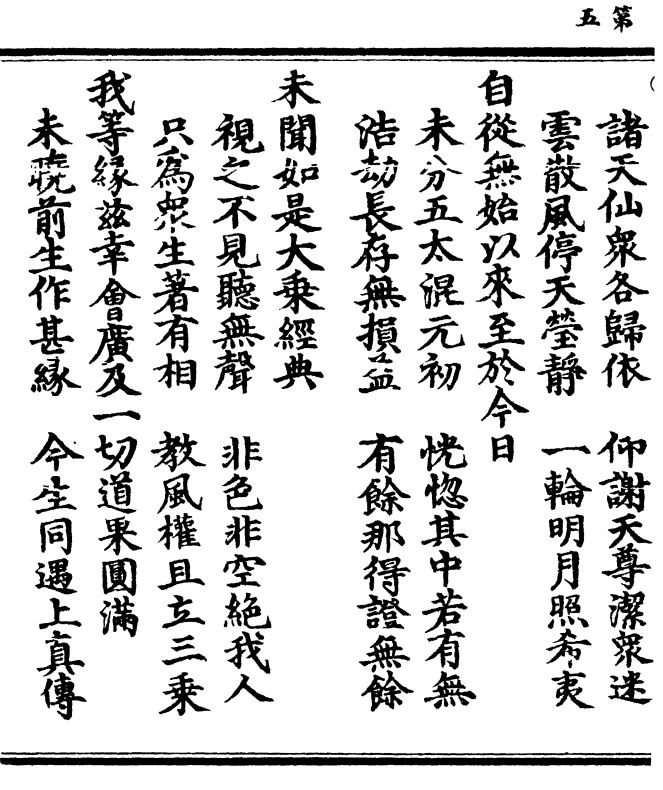 第五
諸天仙衆各歸依　仰謝天尊潔衆迷
雲散風停天瑩靜　一輪明月照希夷
自從無始以來至於今日
未分五太混元初　恍惚其中若有無
浩劫長存無損益　有餘那得證無餘
未聞如是大乘經典
視之不見聽無聲　非色非空絶我人
只爲衆生著有相　教風權且立三乘
我等緣茲幸會廣及一切道果圓滿
未曉前生作甚緣　今生同遇上真傳